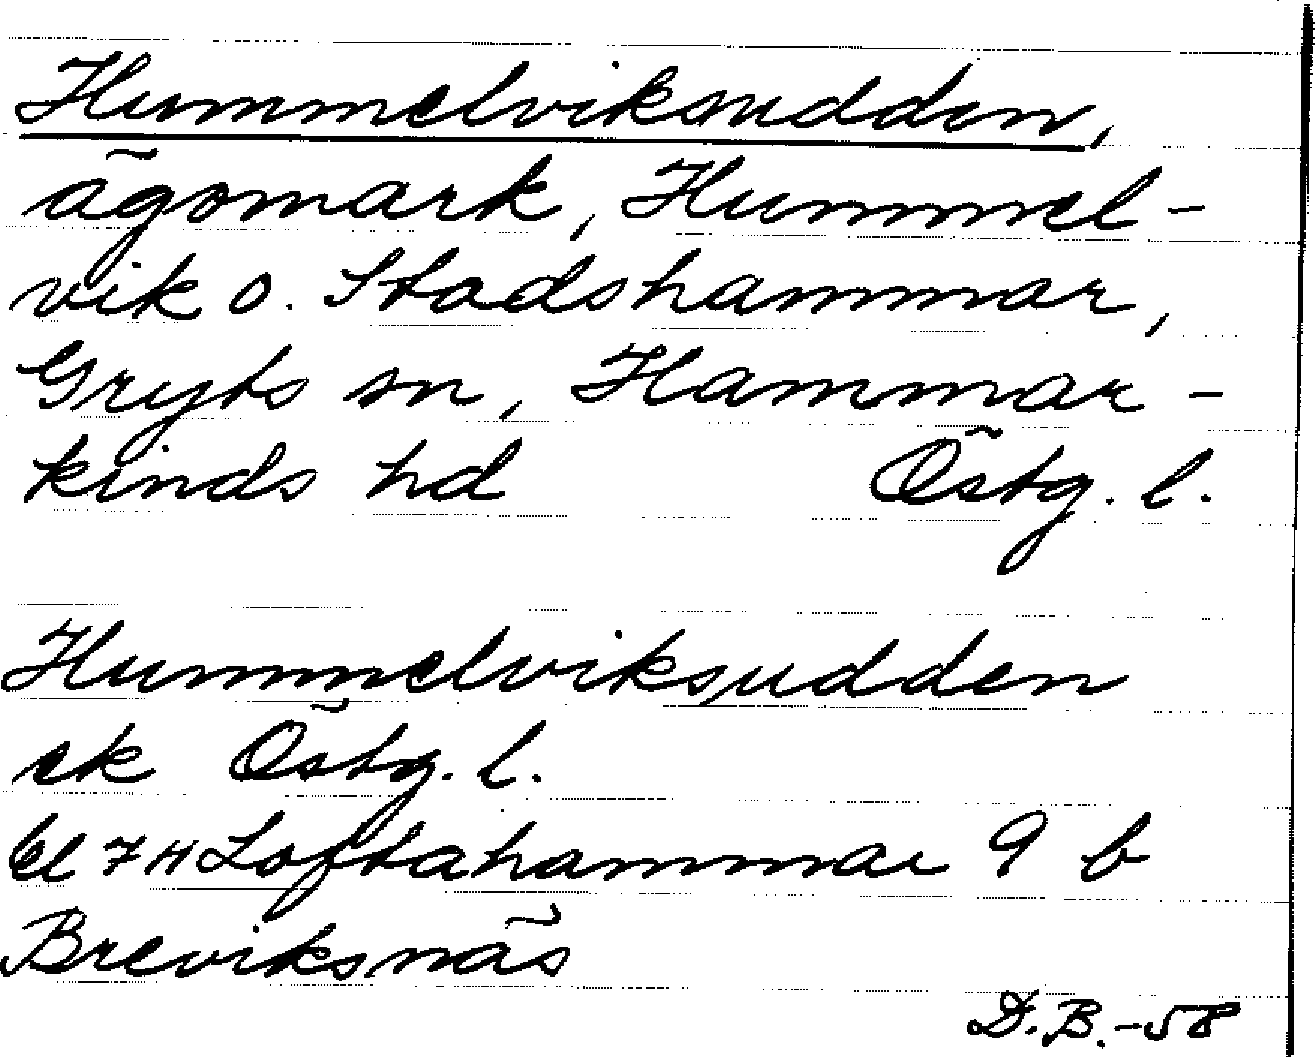 Hummelviksudden,
ägomark, Hummel-
vik o. Stadshammar,
Gryts sn, Hammar-
kinds hd Östg. l.
Hummelviksudden
ek Östg. l.
bl 7H Loftahammar 9 b
Breviksnäs
D.B.-58